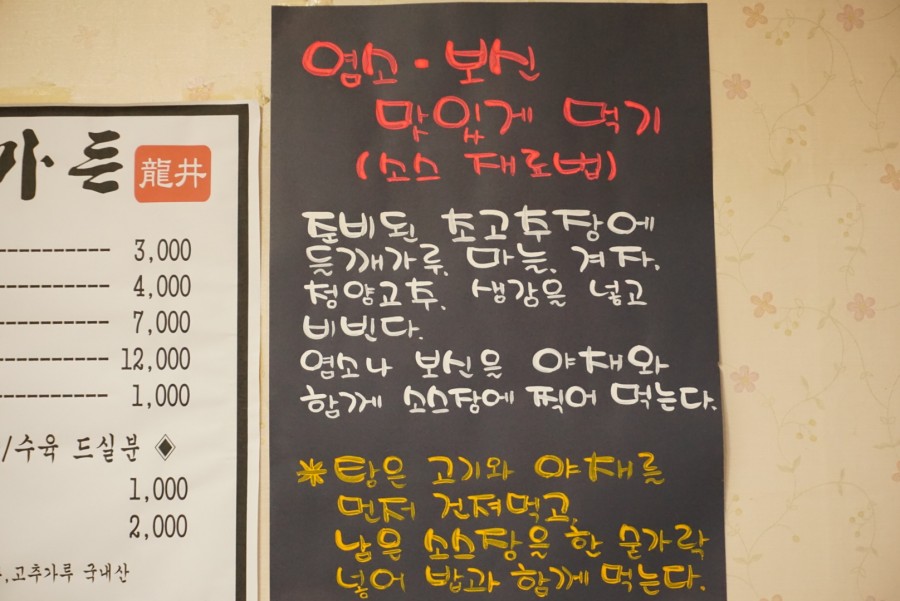 가든 龍井
3,000
4,000
7,000
12,000
1,000
/수육 드실분 ◈
1,000
2,000
,고추가루 국내산
염소·보신
맛입게 먹기
(소스 재료법)
준비된 초고추장에
들깨가루, 마늘, 겨자,
청양고추, 생강을 넣고
비빈다.
염소나 보신을 야채와
함께 소스장에 찍어 먹는다.
※탕은 고기와 야채를
먼저 건져먹고,
남은 소스장을 한 숟가락
넣어 밥과 함께 먹는다.